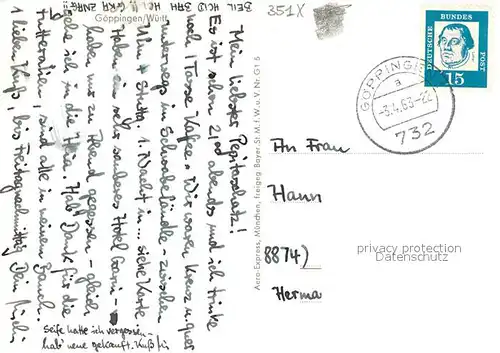 Göppingen/Württ.
351X
Mein liebster Pepitaschatz!
Es ist schon 21⁰⁰ abends und ich trinke
noch 1 Tasse Kaffee. Wir waren kreuz u. quer
unterwegs im Schwabenländle - zwischen
Ulm + Stuttg. 1. Nacht in ... siehe Karte
Habe ein sehr sauberes Hotel Garni -
haben nur zu Abend gegessen - gleich
gehe ich in die Heia. Hab Dank für die
sind alle in meinem Bauch.
1 lieben Kuß, bis Freitagnachmittag Dein
Seife hatte ich vergessen -
hab' neue gekauft. Kuß für
Aero-Express, München, freigeg. Bayer. St. M. f. W. u. V. Nr. G 1 5
DEUTSCHE BUNDES POST
15
GÖPPINGEN
a
-3.4.63-22
732
An Frau
Hann
8874)
Herma
privacy protection
Datenschutz